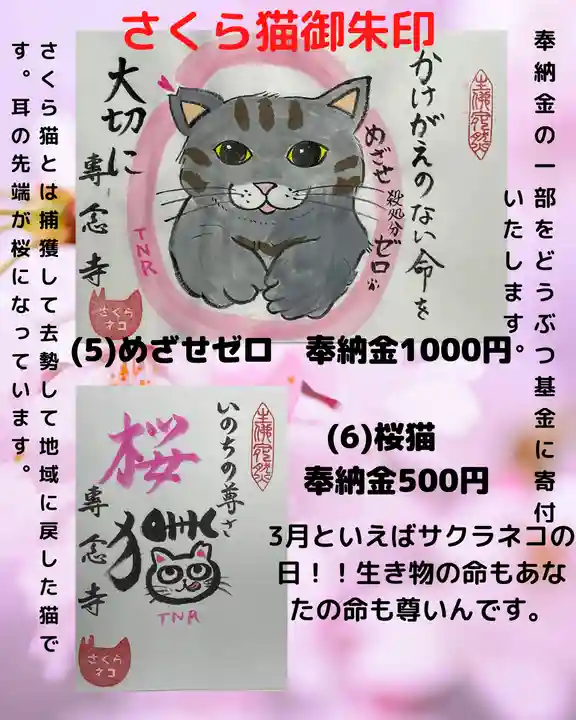 さくら猫御朱印
奉納金の一部をどうぶつ基金に寄付
いたします。
かけがえのない命を
めざせ
殺処分
ゼロ
大切に
專念寺
TNR
さくら
ネコ
さくら猫とは捕獲して去勢して地域に戻した猫で
す。耳の先端が桜になっています。
(5)めざせゼロ 奉納金1000円
いのちの尊さ
桜
猫
專念寺
TNR
さくら
ネコ
(6)桜猫
奉納金500円
3月といえばサクラネコの
日！！生き物の命もあな
たの命も尊いんです。